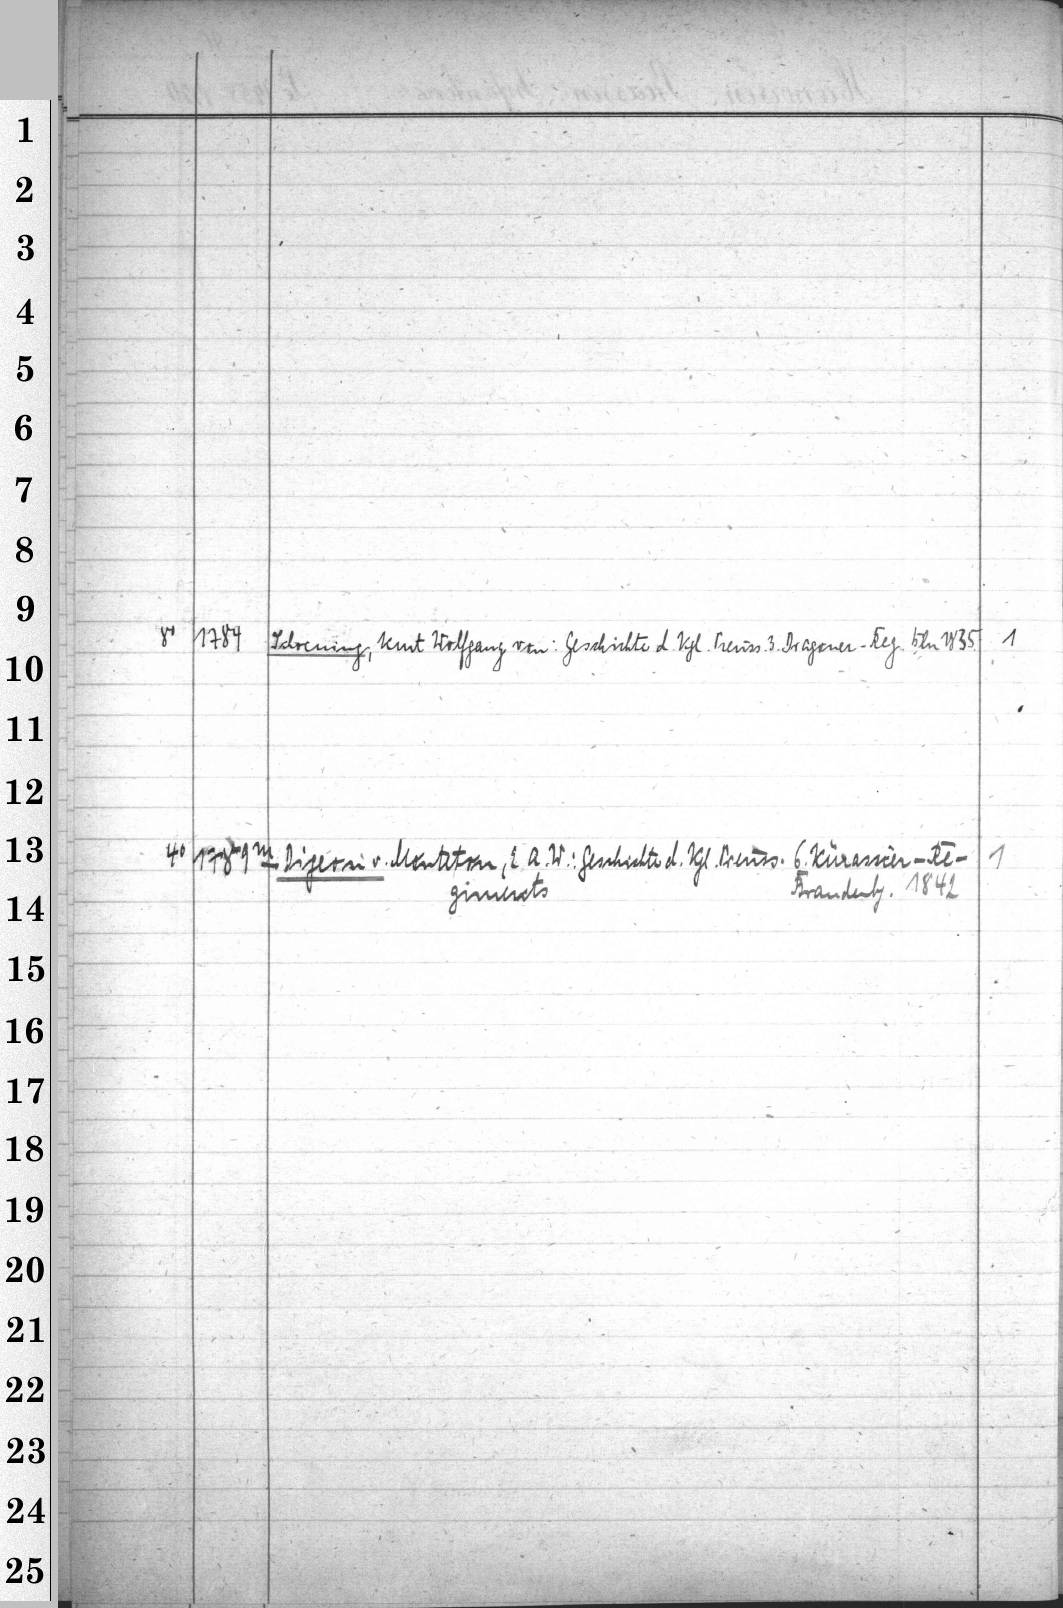 1
2
3
4
5
6
7
8
9
8° 1784 Schoening, Kurt Wolfgang von: Geschichte d. Kgl. Preuss. 3. Dragoner-Reg. Bln 1835 1
10
11
12
13
4° 1789m Digeon v. Monteton, E. A. W.: Geschichte d. Kgl. Preuss. 6. Kürassier-Re- 1
giments Brandenbg. 1842
14
15
16
17
18
19
20
21
22
23
24
25